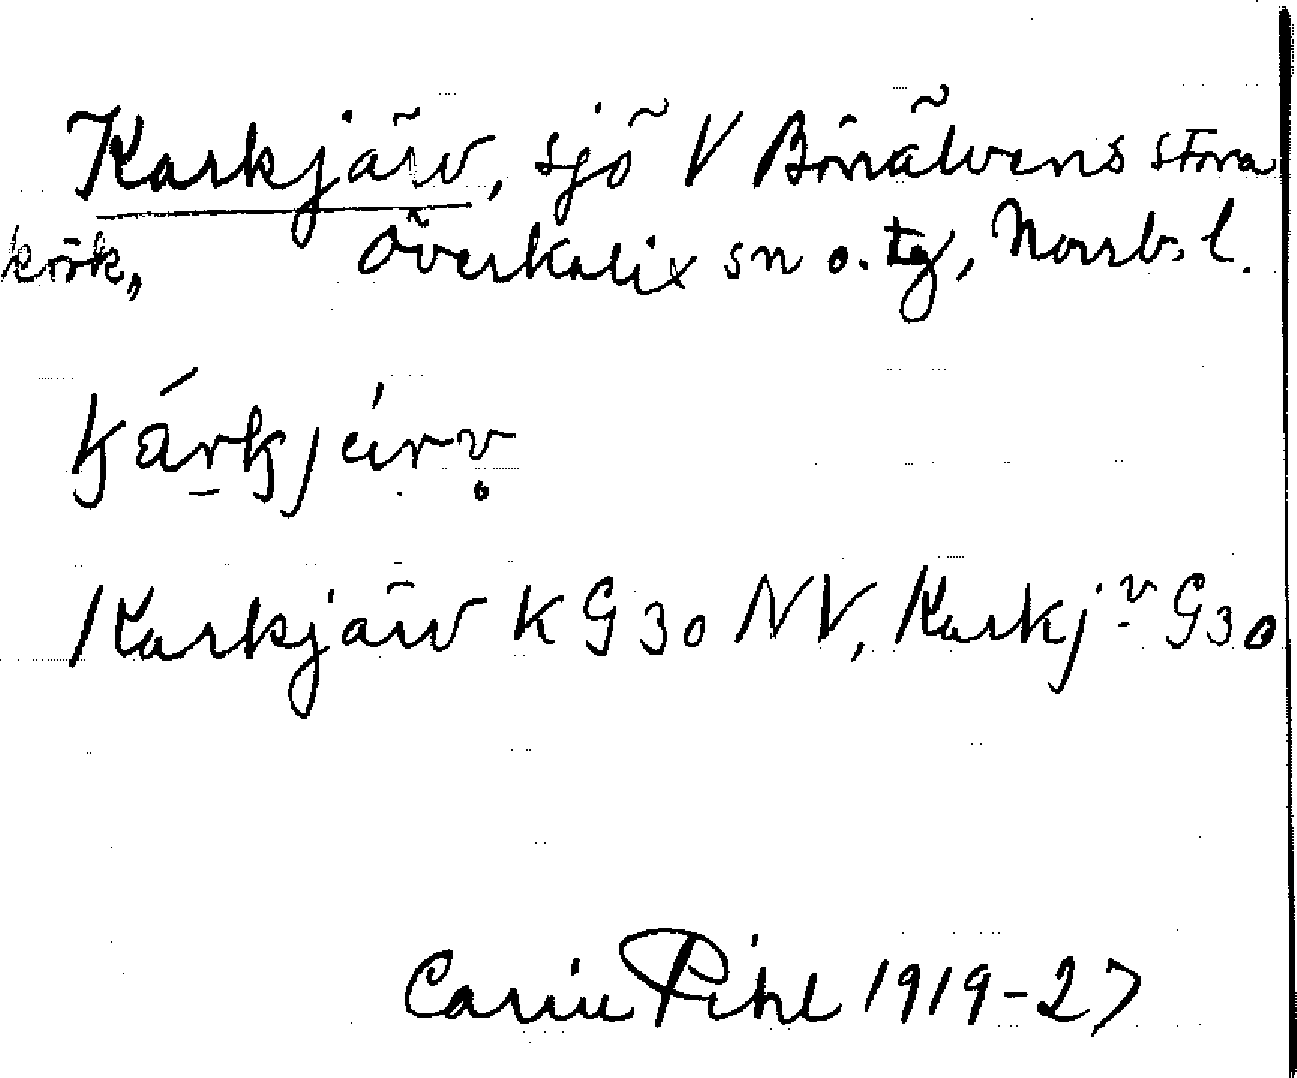 Karkjärv, sjö V Börälvens stora
krök, Överkalix sn o. tg, Norrb. l.
Karkjärv KG30 NV, Karkj:v G30
Carin Pihl 1919-27